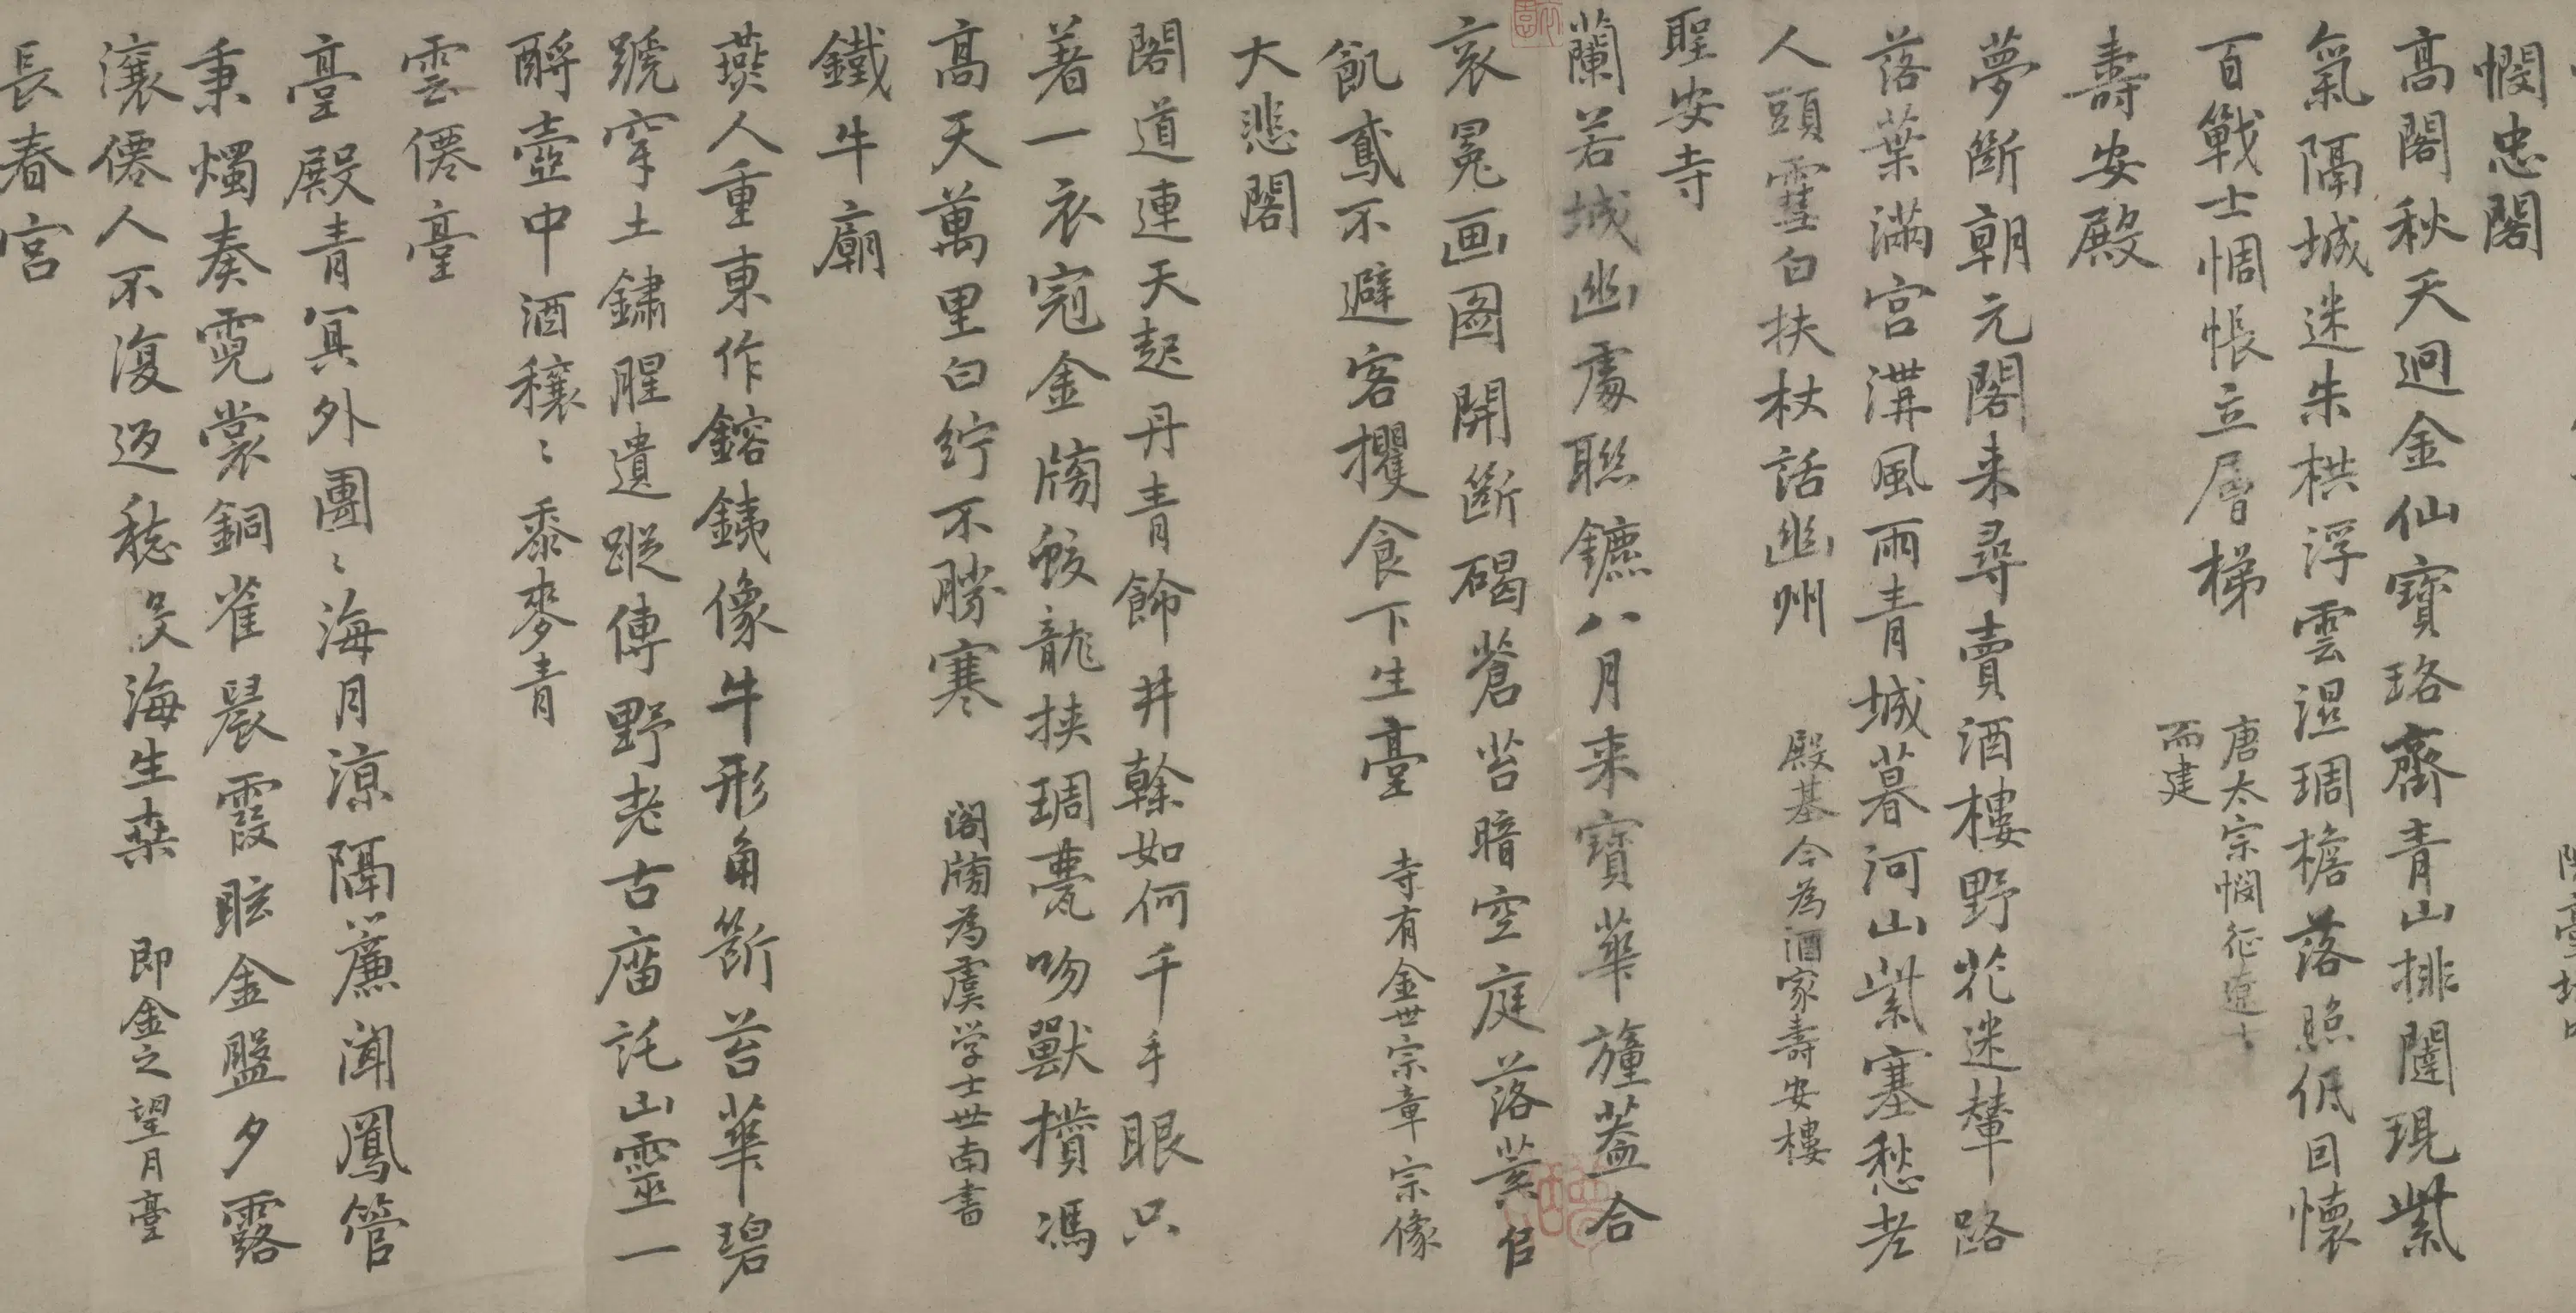 憫忠閣
高閣秋天迥金仙寶珞齊青山排闥現紫
氣隔城迷朱栱浮雲濕琱檐落照低回懷
百戰士惆悵立層梯
唐太宗憫征遼士
而建
壽安殿
夢斷朝元閣来尋賣酒樓野花迷輦路
落葉滿宮溝風雨青城暮河山紫塞愁老
人頭雪白扶杖話幽州
殿基今為酒家壽安樓
聖安寺
蘭若城幽處聯鑣八月来寶華幢蓋合
衮冕画圖開斷碣蒼苔暗空庭落葉
飢鳶不避客攫食下生臺
寺有金世宗章宗像
大悲閣
閣道連天起丹青飾井榦如何千手眼只
著一衣冠金牓蛟龍挾琱甍吻獸攢馮
高天萬里白紵不勝寒
閣牓為虞学士世南書
鐵牛廟
燕人重東作鎔銕像牛形角斷苔華碧
蹏穿土鏽腥遺蹤傳野老古庿託山靈一
酹壺中酒穰〻黍麥青
雲僊臺
臺殿青冥外團〻海月涼隔簾聞鳳管
秉燭奏霓裳銅雀晨霞眩金盤夕露
瀼僊人不復返愁没海生桒
即金之望月臺
長春宮